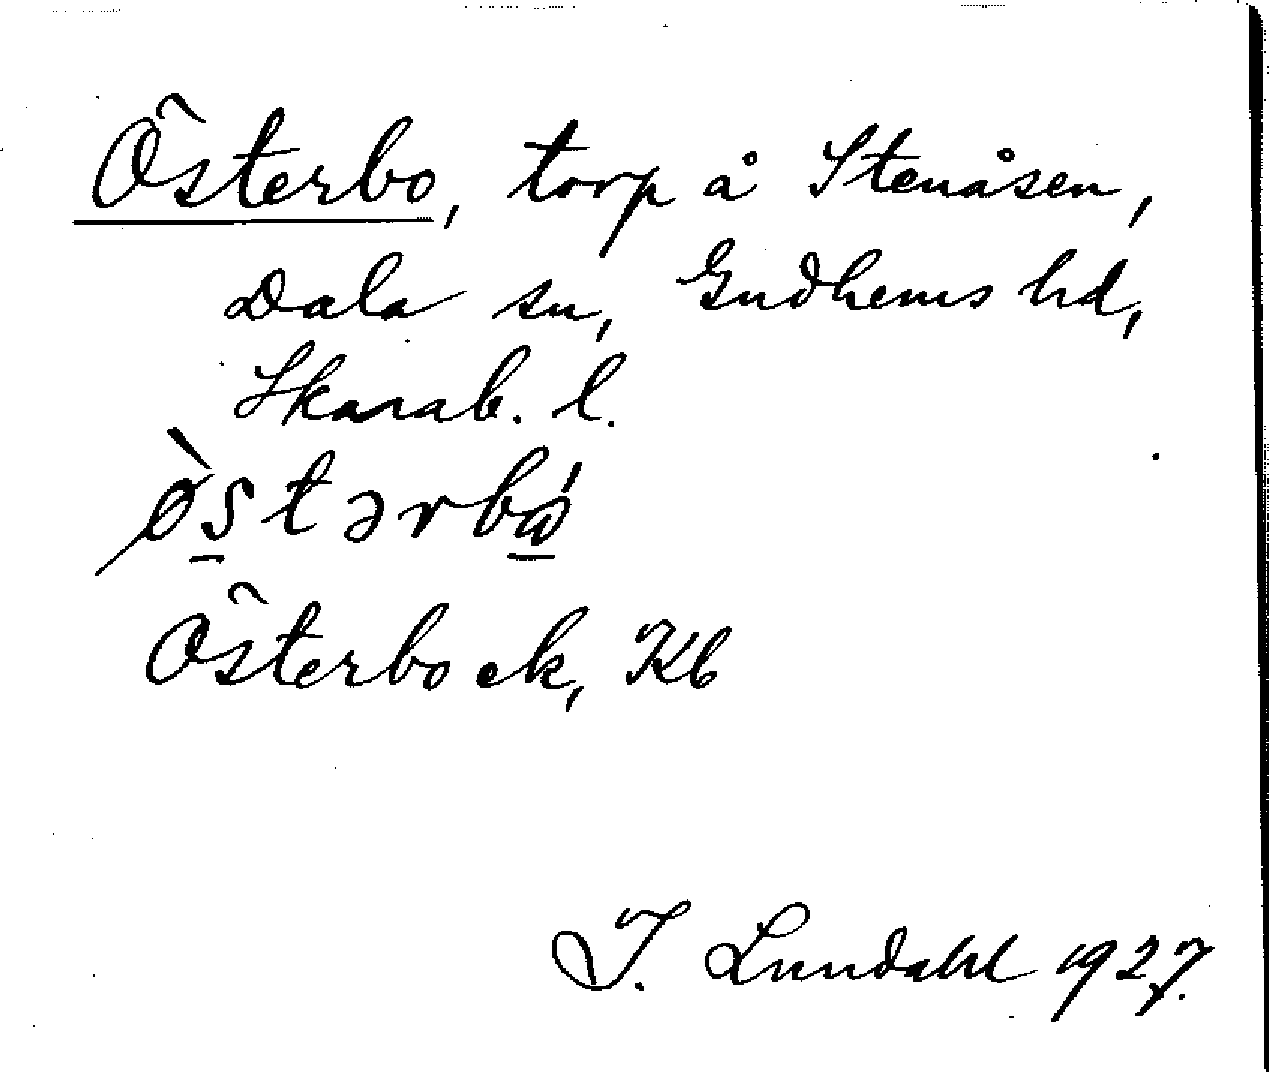 Österbo, torp å Stenåsen,
Dala sn, Gudhems hd,
Skarab. l.
ø̀stərbώ
Österbo ek, Kb
I. Lundahl 1927.